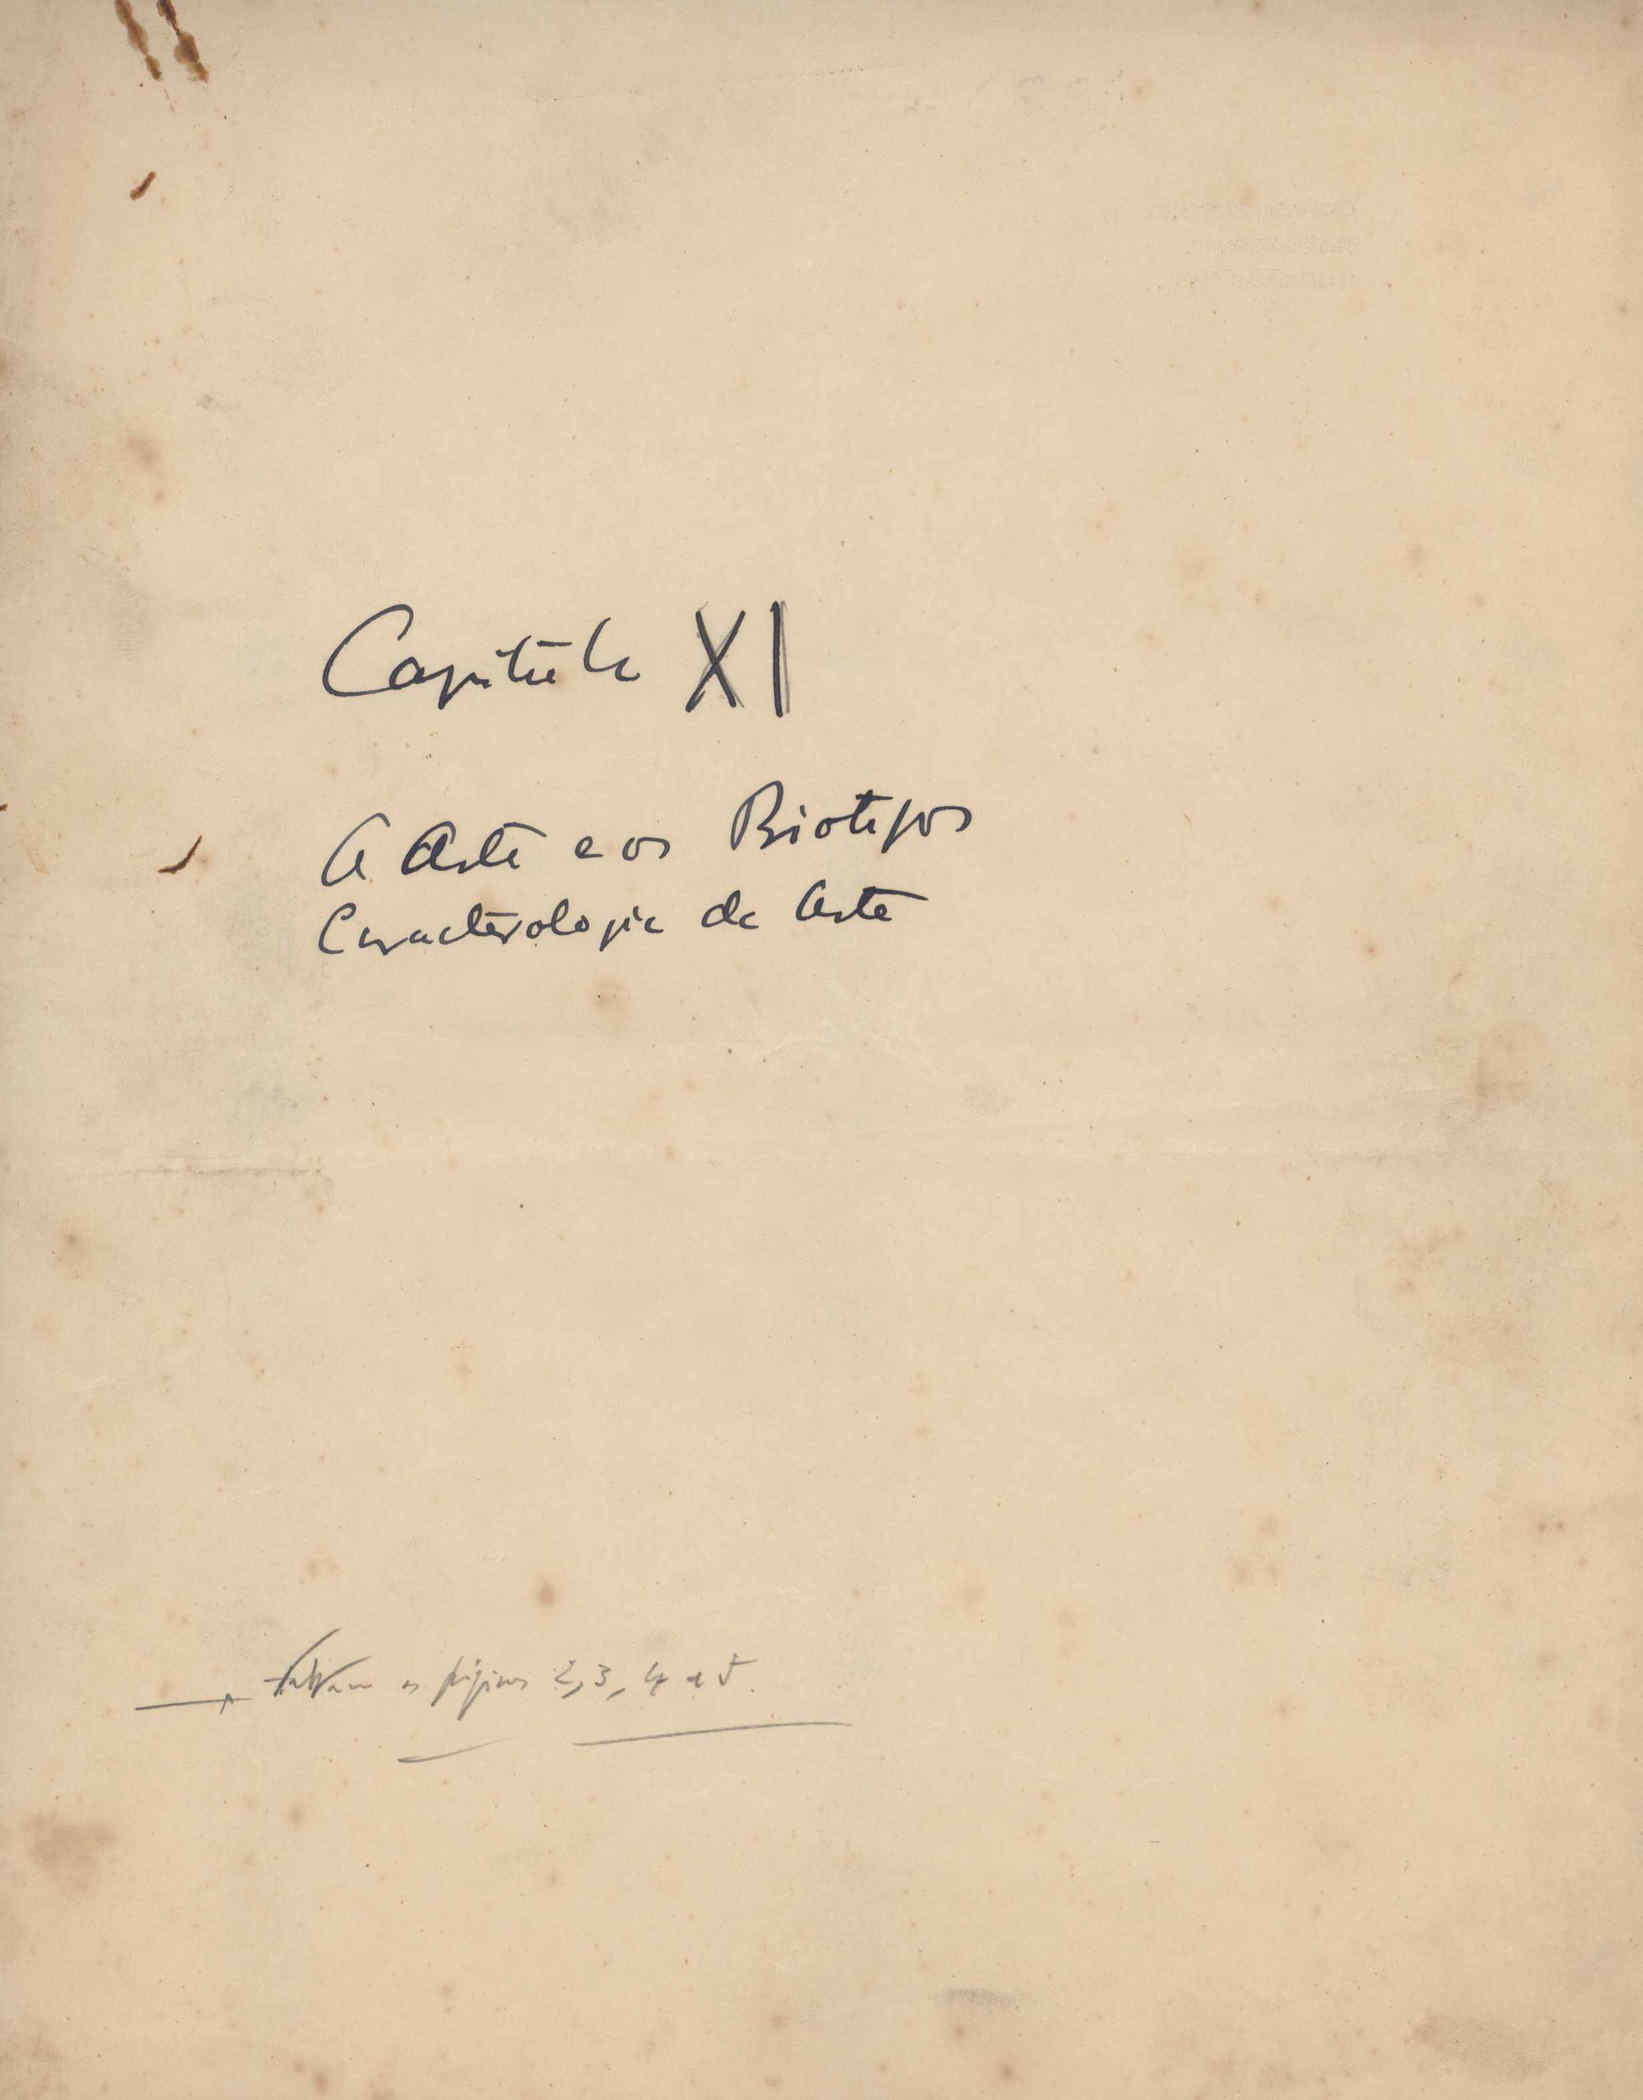 Capítulo XI
A Arte e os Biotipos
Caracterologia da Arte
faltam as páginas 2, 3, 4 e 5.